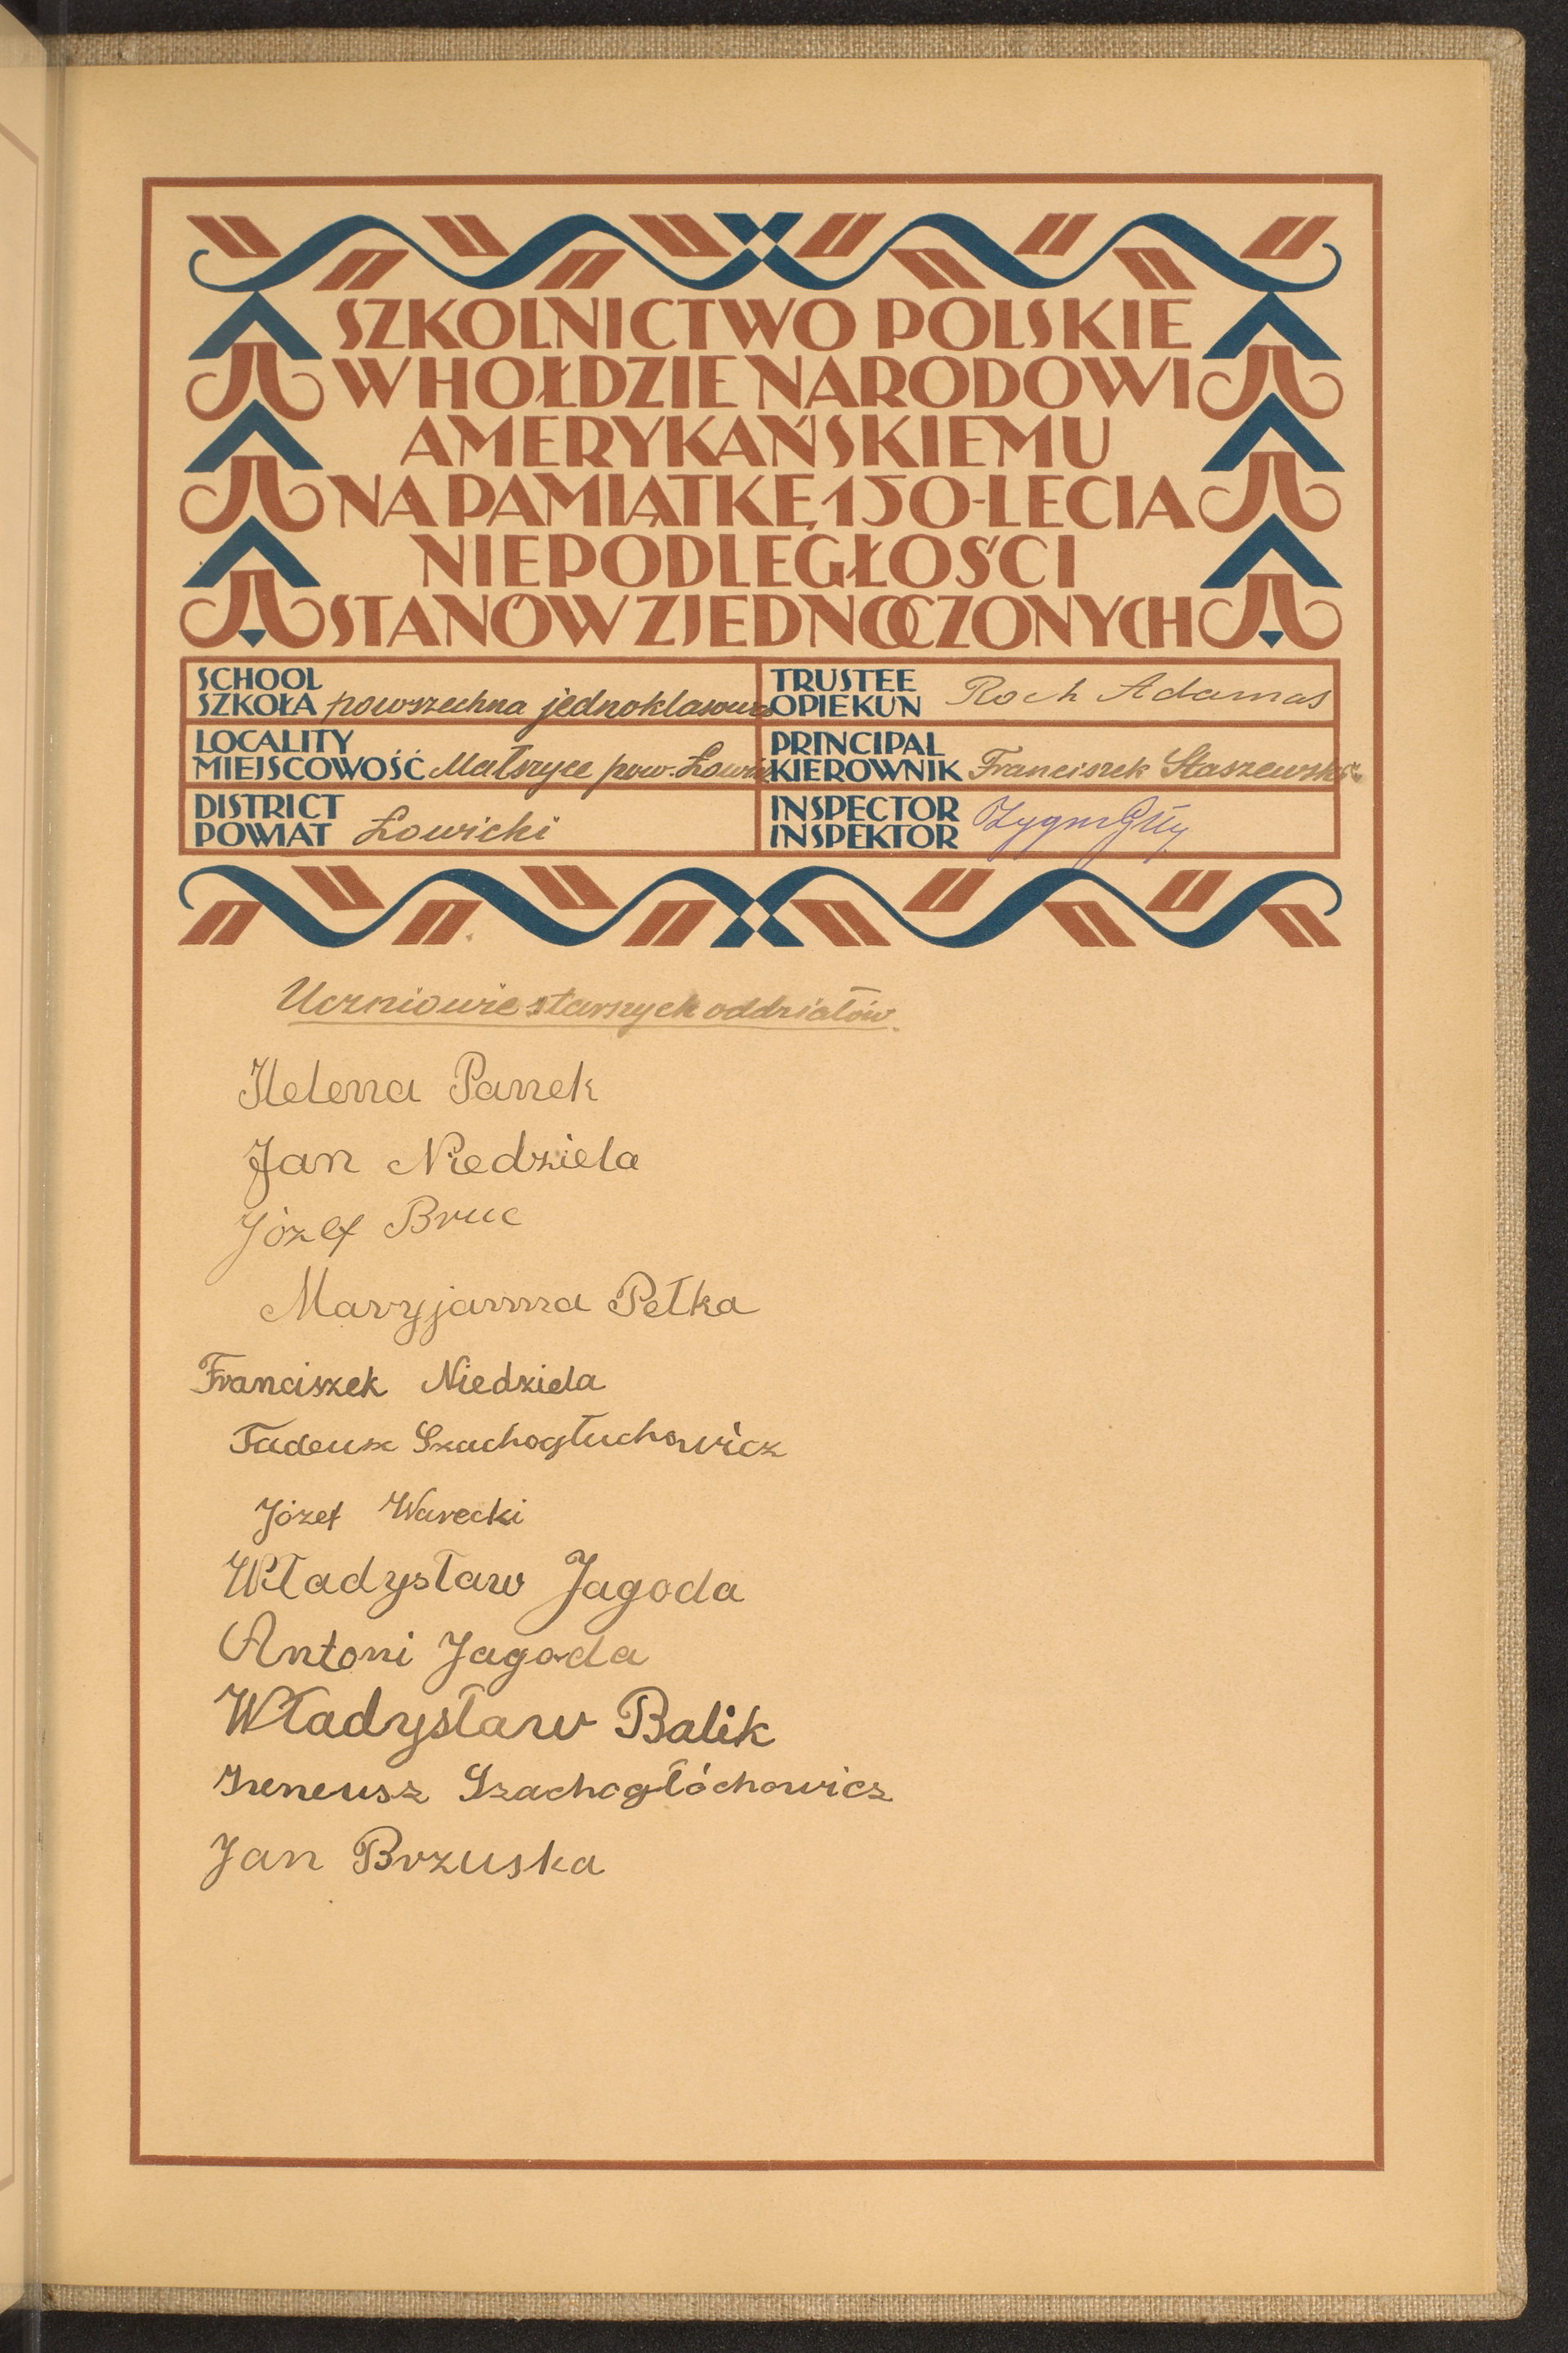 SZKOLNICTWO POLSKIE
W HOŁDZIE NARODOWI
AMERYKAŃSKIEMU
NA PAMIĄTKĘ 150-LECIA
NIEPODLEGŁOŚCI
STANÓW ZJEDNOCZONYCH
SCHOOL
SZKOŁA powszechna jednoklasowa
TRUSTEE
OPIEKUN Roch Adamas
LOCALITY
MIEJSCOWOŚĆ Małszyce pow. Łowicz
PRINCIPAL
KIEROWNIK Franciszek Staszewski
DISTRICT
POWIAT Łowicki
INSPECTOR
INSPEKTOR
Uczniowie starszych oddziałów.
Helena Panek
Jan Niedziela
Józef Bruc
Maryjanna Pełka
Franciszek Niedziela
Tadeusz Szachogłuchowicz
Józef Warecki
Władysław Jagoda
Antoni Jagoda
Władysław Balik
Ireneusz Szachogłóchowicz
Jan Brzuska